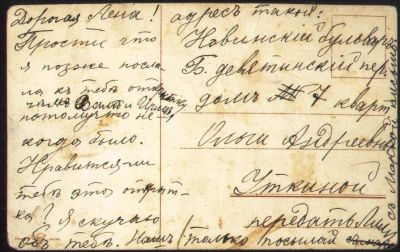 Дорогая Лена!
Прости что
я позже посла
ла къ тебѣ открытку
потому что не
когда было.
Нравится-ли
тебѣ эта открыт
ка? Я скучаю
объ тебѣ. Нашъ
адресъ такой:
Новинскій бульваръ
Б. девятинскій пер.
домъ 7 кварт
Ольги Андреевны
Уткиной
передать Лилѣ
только посылай
съ маркой